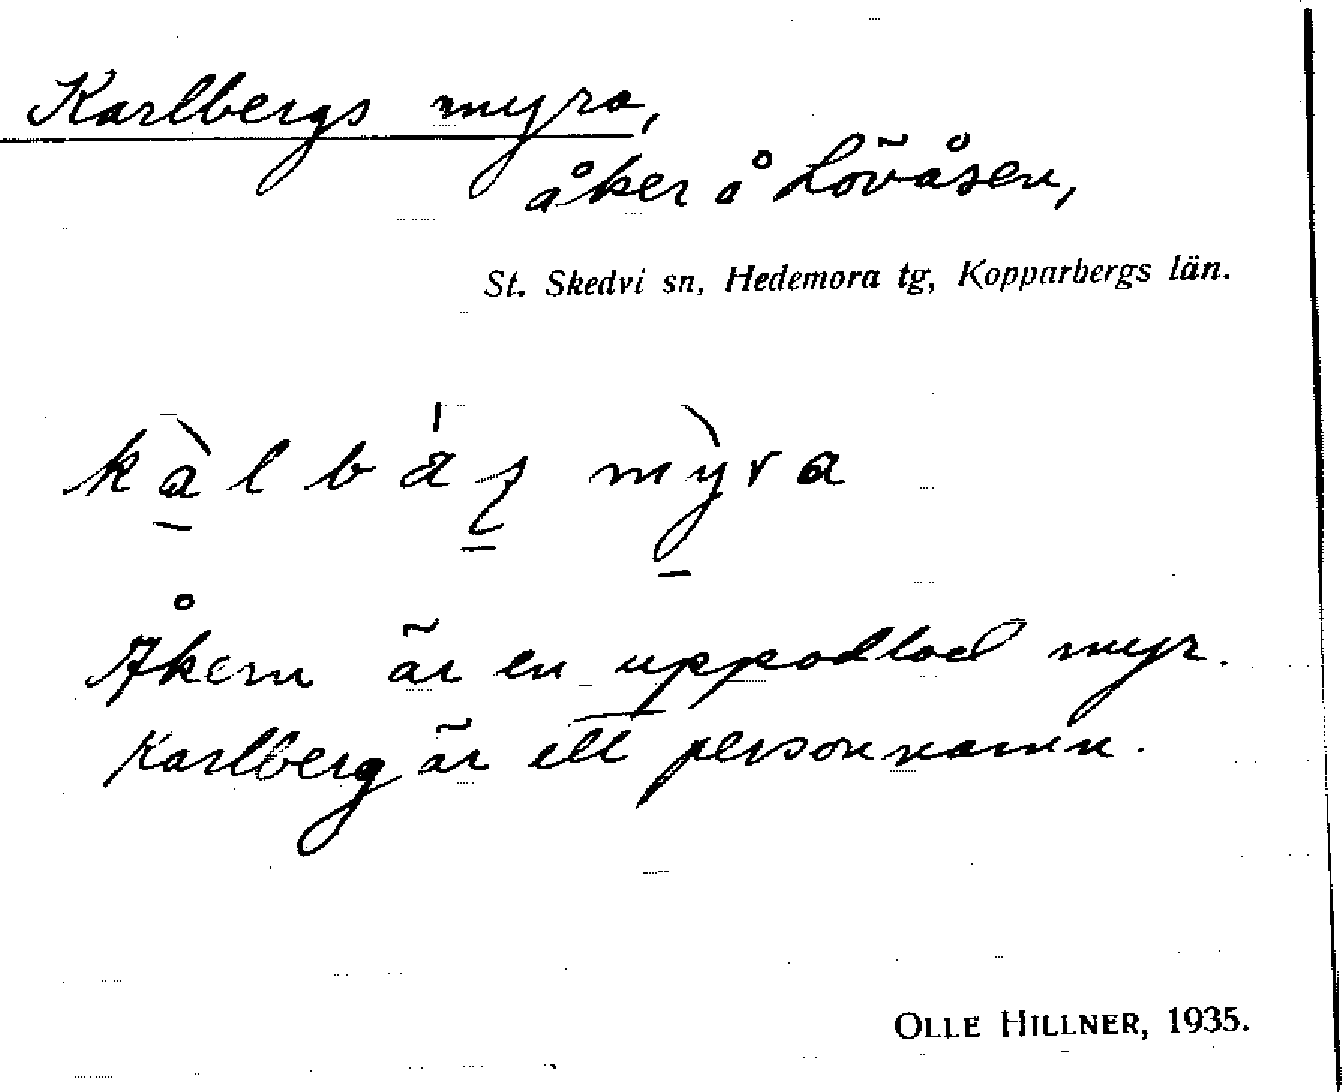 Karlbergs myra,
åker å Lövåsen,
St. Skedvi sn, Hedemora tg, Kopparbergs län.
myra
Åkern är en uppodlad myr.
Karlberg är ett personnamn.
OLLE HILLNER, 1935.